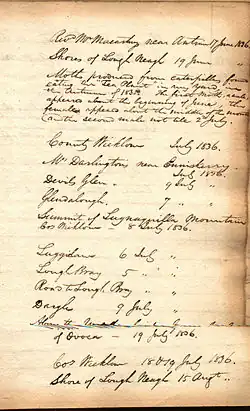 Revd Mr Macartney near Antrim 17 June 1836.
Shores of Lough Neagh 19 June "
Moth produced from caterpillar found
eating on the Plant in my
in Autumn of 1835. The first Moth, male
appeared about the beginning of June, the
females appeared about the middle of the month
and the second male not till 2d July.
County Wicklow July 1836.
Mr Darlington near Enniskerry.
July 1836.
Devils Glen. 9 July "
Glendalough. 7 " "
Summit of Lugnaquilla Mountain
Co. Wicklow – 8 July 1836.
Luggelaw 6 July "
Lough Bray 5 " "
Road to Lough Bray " "
Dargle 9 July "
of Ovoca – 19 July 1836.
Co. Wicklow 18 & 19 July 1836.
Shore of Lough Neagh 15 Augt "